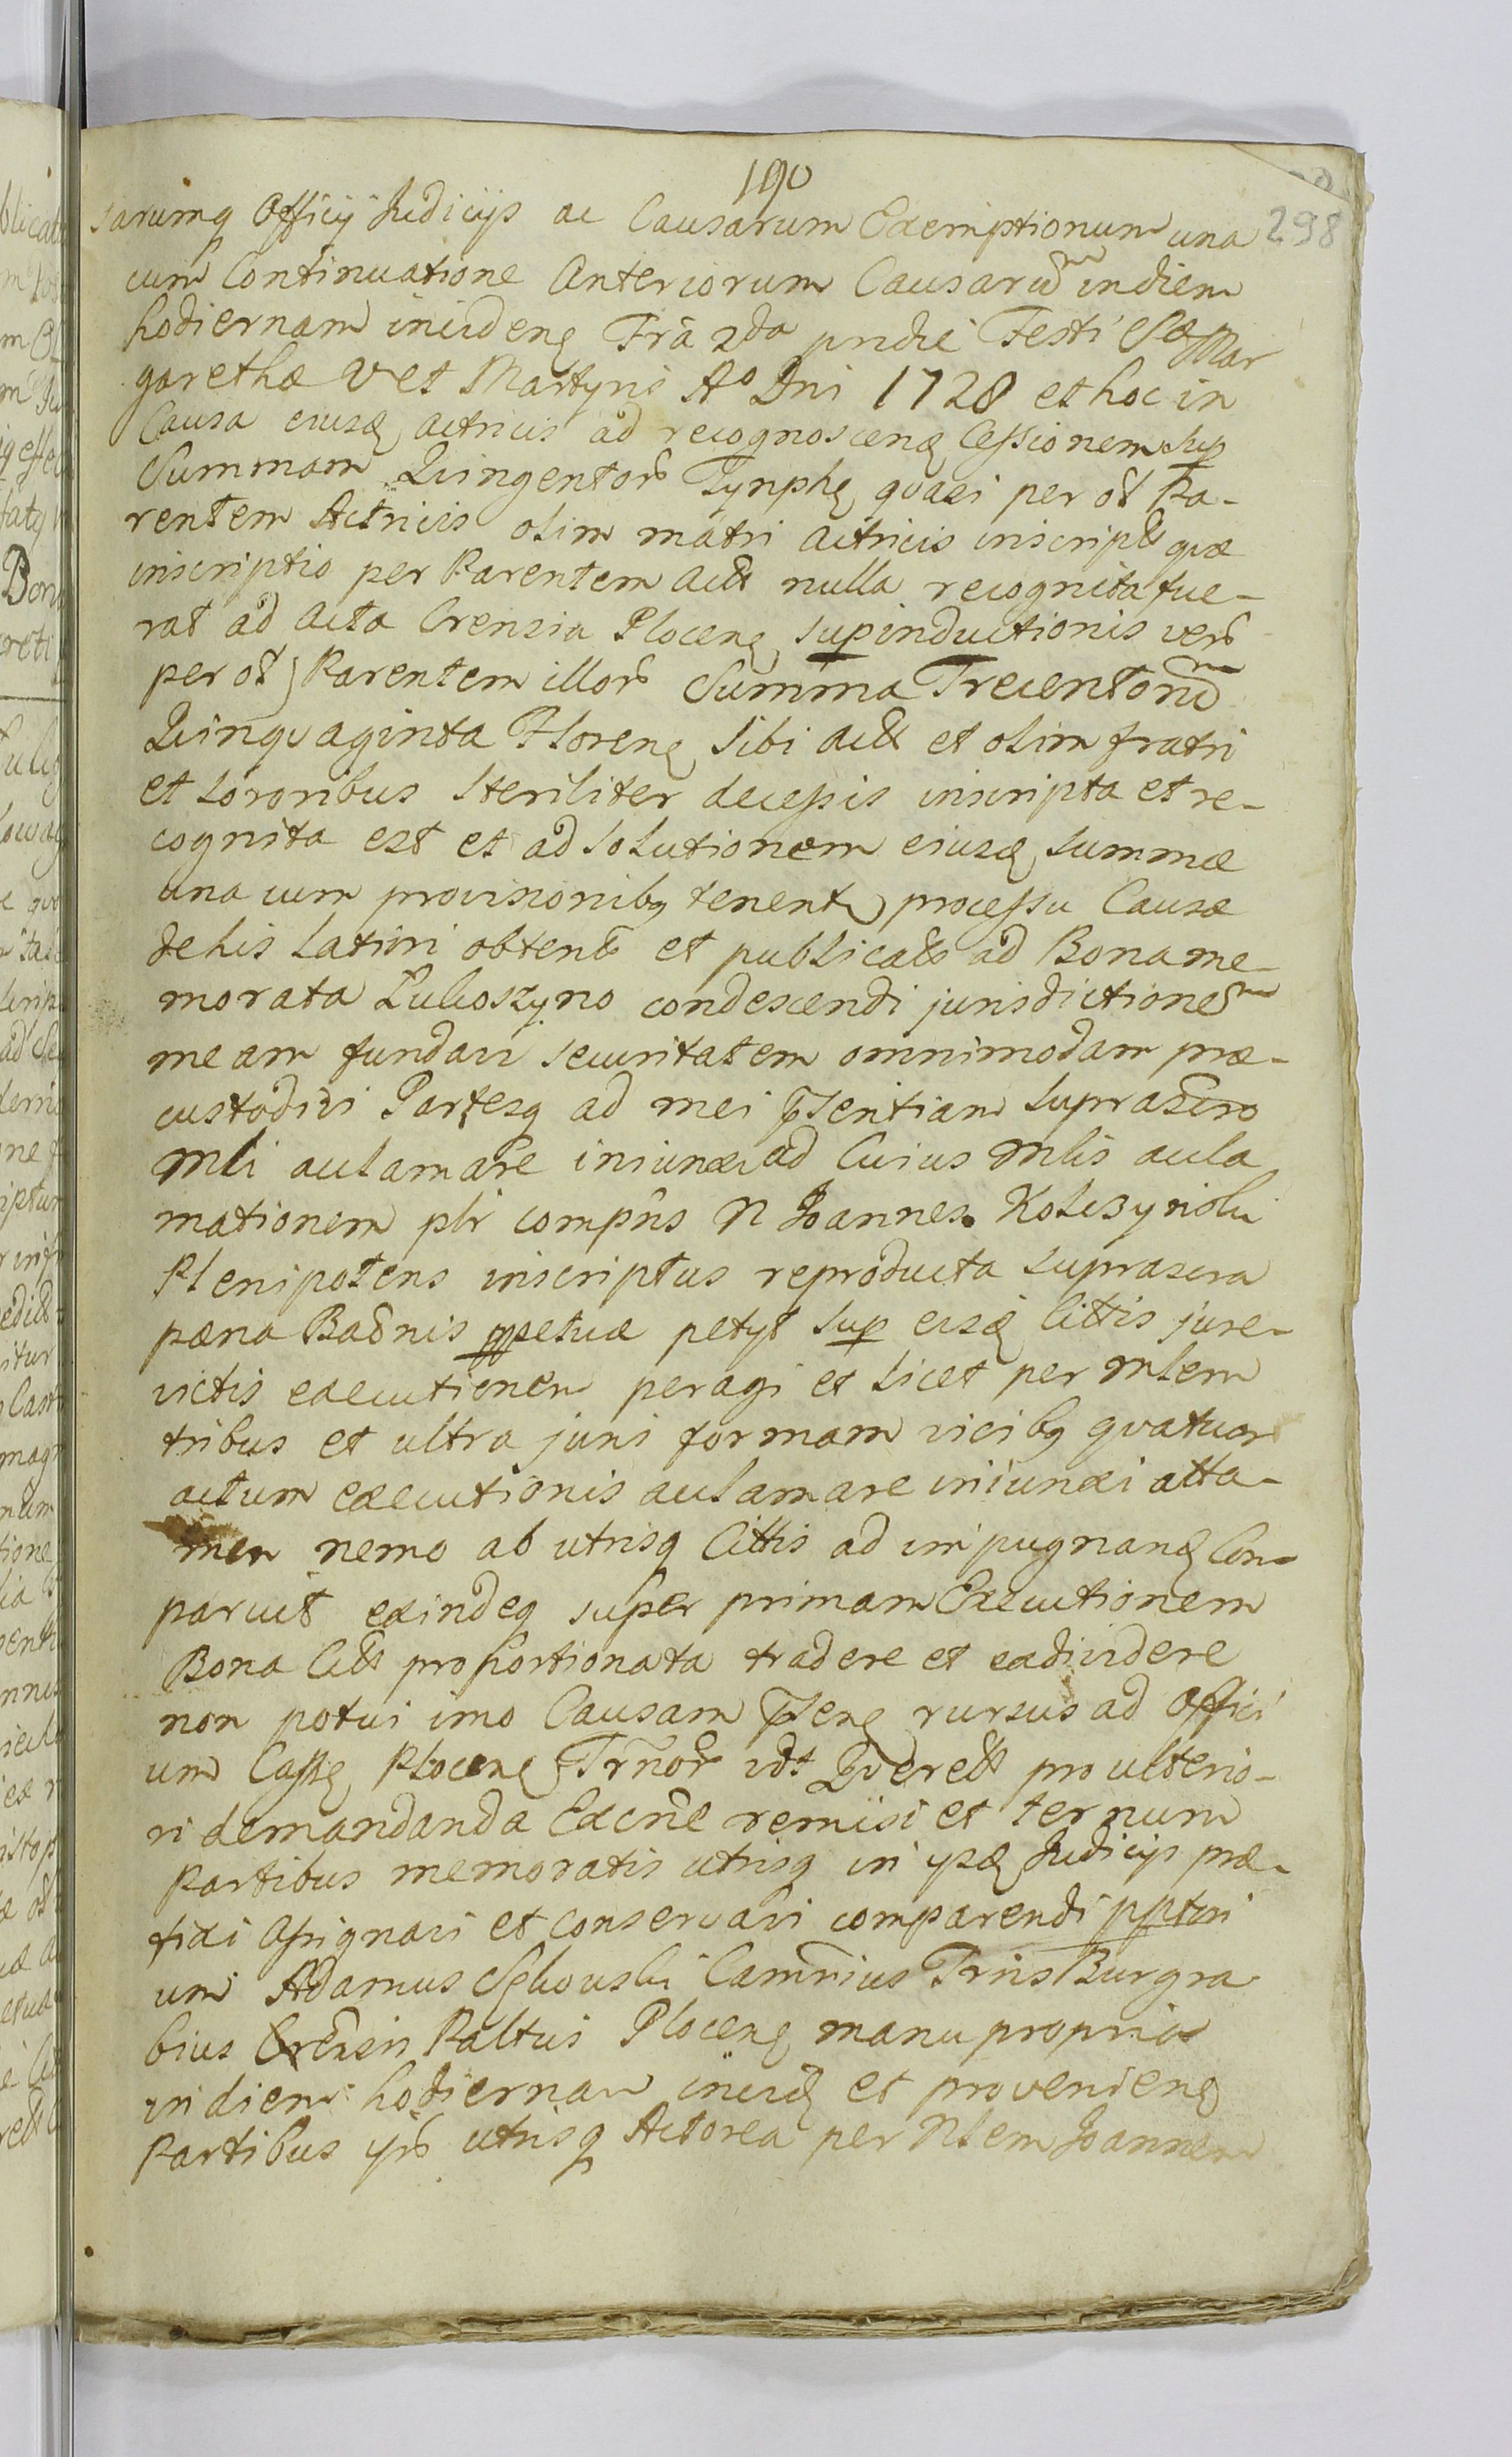 190
298
sarumq Officij Judicijs ac Causarum Exemptionum una
cum Continuatione Anteriorum Causarum indiem
hodiernam incidenq Fria 2da pridie Festi Stæ Mar
garethæ V et Martyris Ao Dni 1728 et hoc in
Causa eiusq actricis ad recognoscenq Cessionem sup
Summam Quingentor Tynphq quasi per ol Pa-
rentem Actricis olim matri actricis inscript quæ
inscriptio per Parentem act nulla recognita fue-
rat ad Acta Crensia Plocenq supinductionis vero
per ol Parentem illor Summa Trecentorum
Quinquaginta Florenq sibi act et olim fratri
et sororibus steriliter decessis inscripta et re-
cognita est et ad solutionem eiusq summæ
una cum provisionibq tenent processu Causæ
de his latiori obtent et publicat ad Bona me-
morata Lukoszyno condescendi jurisdictionem
meam fundavi securitatem omnimodam præ-
custodivi Partesq ad mei pntiam suprascro
Mli aclamare iniunxi ad Cuius Mlis acla
mationem plr compns N Joannes Kolczynski
Plenipotens inscriptus reproducta suprascra
pæna Banis ppetuæ petyt sup eisq Cittis jure
victis executionem peragi et licet per Mlem
tribus et ultra juris formam vicibq quatuor
actum executionis aclamare iniunxi atta-
men nemo ab utrisq Cittis ad impugnanq Com-
paruit exindeq super primam Executionem
Bona Citt proportionata tradere et exdividere
non potui imo Causam psenq rursus ad Offici
um Cassq Plocenq Trnor idt Quæreli pro ulterio-
ri demandanda Excne remisi et ternum
Partibus memoratis utrisq in ipsq Judicijs præ-
fixi Assignavi et conservavi comparendi pptri
um Adamus Camrius Trris Burgra
bius Crensis Paltus Plocenq manu propria
in diem hodiernam incidq et provenienq
Partibus ipso utrisq Actorea per Nlem Joannem